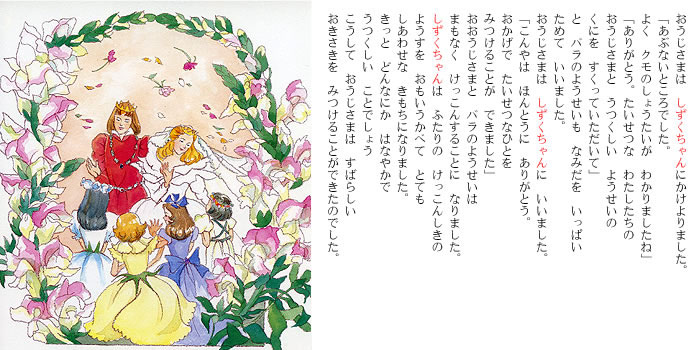 おうじさまは　しずくちゃんにかけよりました。
「あぶないところでした。
よく　クモのしょうたいが　わかりましたね」
「ありがとう。たいせつな　わたしたちの
おうじさまと　うつくしい　ようせいの
くにを　すくっていただいて」
と　バラのようせいも　なみだを　いっぱい
ためて　いいました。
おうじさまは　しずくちゃんに　いいました。
「こんやは　ほんとうに　ありがとう。
おかげで　たいせつなひとを
みつけることが　できました」
おおうじさまと　バラのようせいは
まもなく　けっこんすることに　なりました。
しずくちゃんは　ふたりの　けっこんしきの
ようすを　おもいうかべて　とても
しあわせな　きもちになりました。
きっと　どんなにか　はなやかで
うつくしい　ことでしょう
こうして　おうじさまは　すばらしい
おきさきを　みつけることができたのでした。